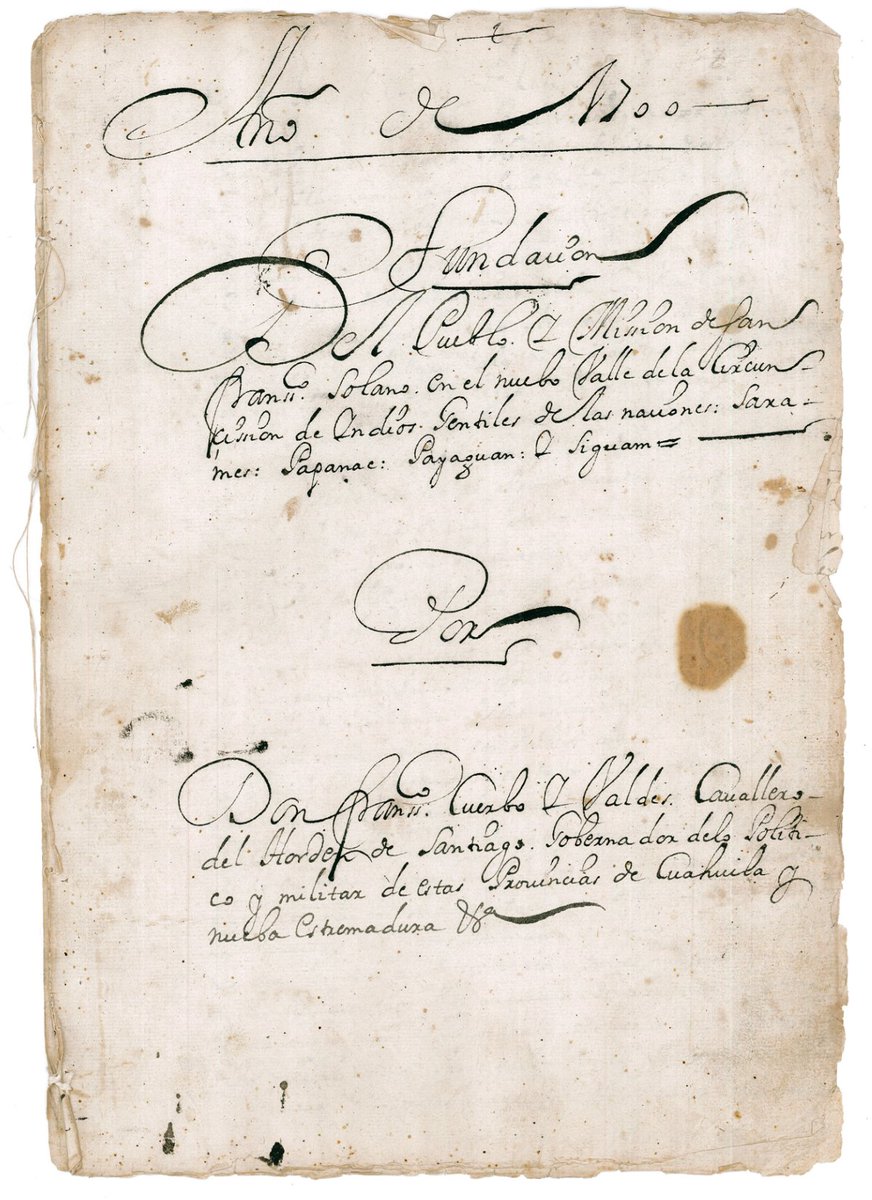 Año de 1700
Fundacion
Del Pueblo. Y Mission de san
fransco. solano. en el nuebo Valle de la Circun-
cission de Indios. Gentiles de las naciones: Sara-
mes: Papanac: Payaguan: Y Siguam=
Por
Don fransco. Cuerbo Y Valdes. Cavallero-
del Horden de Santiago. Gobernador delo Politi-
co y militar de estas Provincias de Cuahuila y
nueba estremadura &a